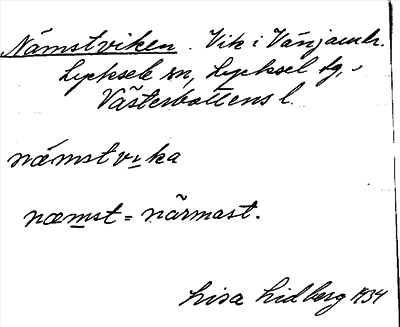 Nämstviken. Vik i Vänjaur.
Lycksele sn, Lycksel tg,
Västerbottens l.
nämstvıka
næmst = närmast.
Lisa Lidberg 1934